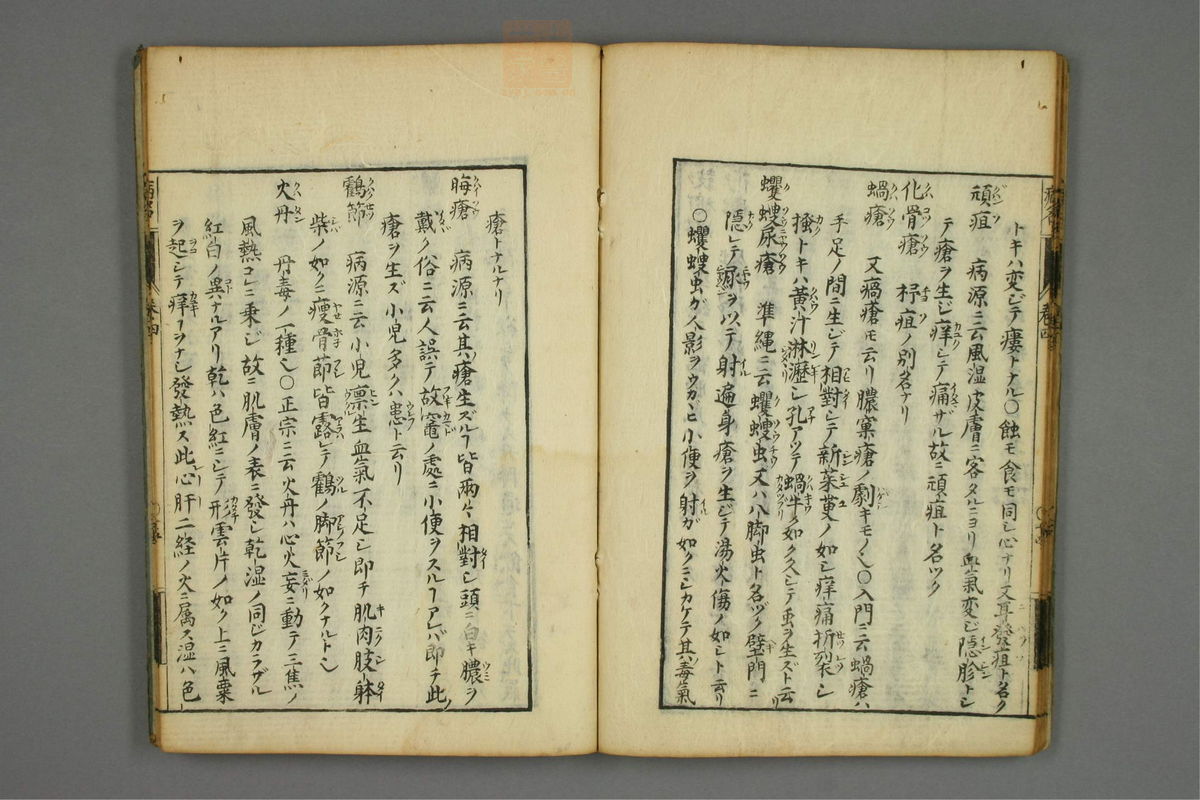 トキハ変ジテ瘻トナル〇蝕モ食モ同シ心ナリ又耳發疽ト名ク
頑疽 病源ニ云風湿皮膚ニ客タルニヨリ血氣変ジ隠胗トシ
テ瘡ヲ生ジ痒シテ痛ザル故ニ頑疽ト名ヅク
化骨瘡 杼疽ノ別名ナリ
蝸瘡 又瘑瘡モ云リ膿窠瘡ノ劇キモノ也〇入門ニ云蝸瘡ハ
手足ノ間ニ生ジテ相對シテ新茱萸ノ如シ痒痛折裂シ
搔トキハ黃汁淋瀝シ孔アツテ蝸牛ノ如ク久シテ虫ヲ生ズト云リ
蠼螋尿瘡 準縄ニ云蠼螋虫又ハ八脚虫ト名ヅク壁門ニ
隠レテ尿ヲ以テ射遍身瘡ヲ生ジテ湯火傷ノ如シト云リ
〇蠼螋虫ガ人影ヲウカヾヒ小便ヲ射ガ如クニシカケテ其毒氣
瘡トナルナリ
晦瘡 病源ニ云其瘡生ズルヿ皆兩々相對シ頭ニ白キ膿ヲ
戴ク俗ニ云人誤テ故竈ノ處ニ小便ヲスルヿアレバ即チ此ノ
瘡ヲ生ズ小児多クハ患ト云リ
鶴節 病源ニ云小児禀生血氣不足シ即チ肌肉肢躰
柴ノ如クニ瘦骨節皆露レテ鶴ノ脚節ノ如クナルト也
火丹 丹毒ノ一種也〇正宗ニ云火丹ハ心火妄ニ動テ三焦ノ
風熱コレニ乗ジ故ニ肌膚ノ表ニ發シ乾湿ノ同ジカラザル
紅白ノ異ナルアリ乾ハ色紅ニシテ形雲片ノ如ク上ニ風粟
ヲ起シテ痒ヿヲナシ發熱ス此心肝二経ノ火ニ属ス湿ハ色